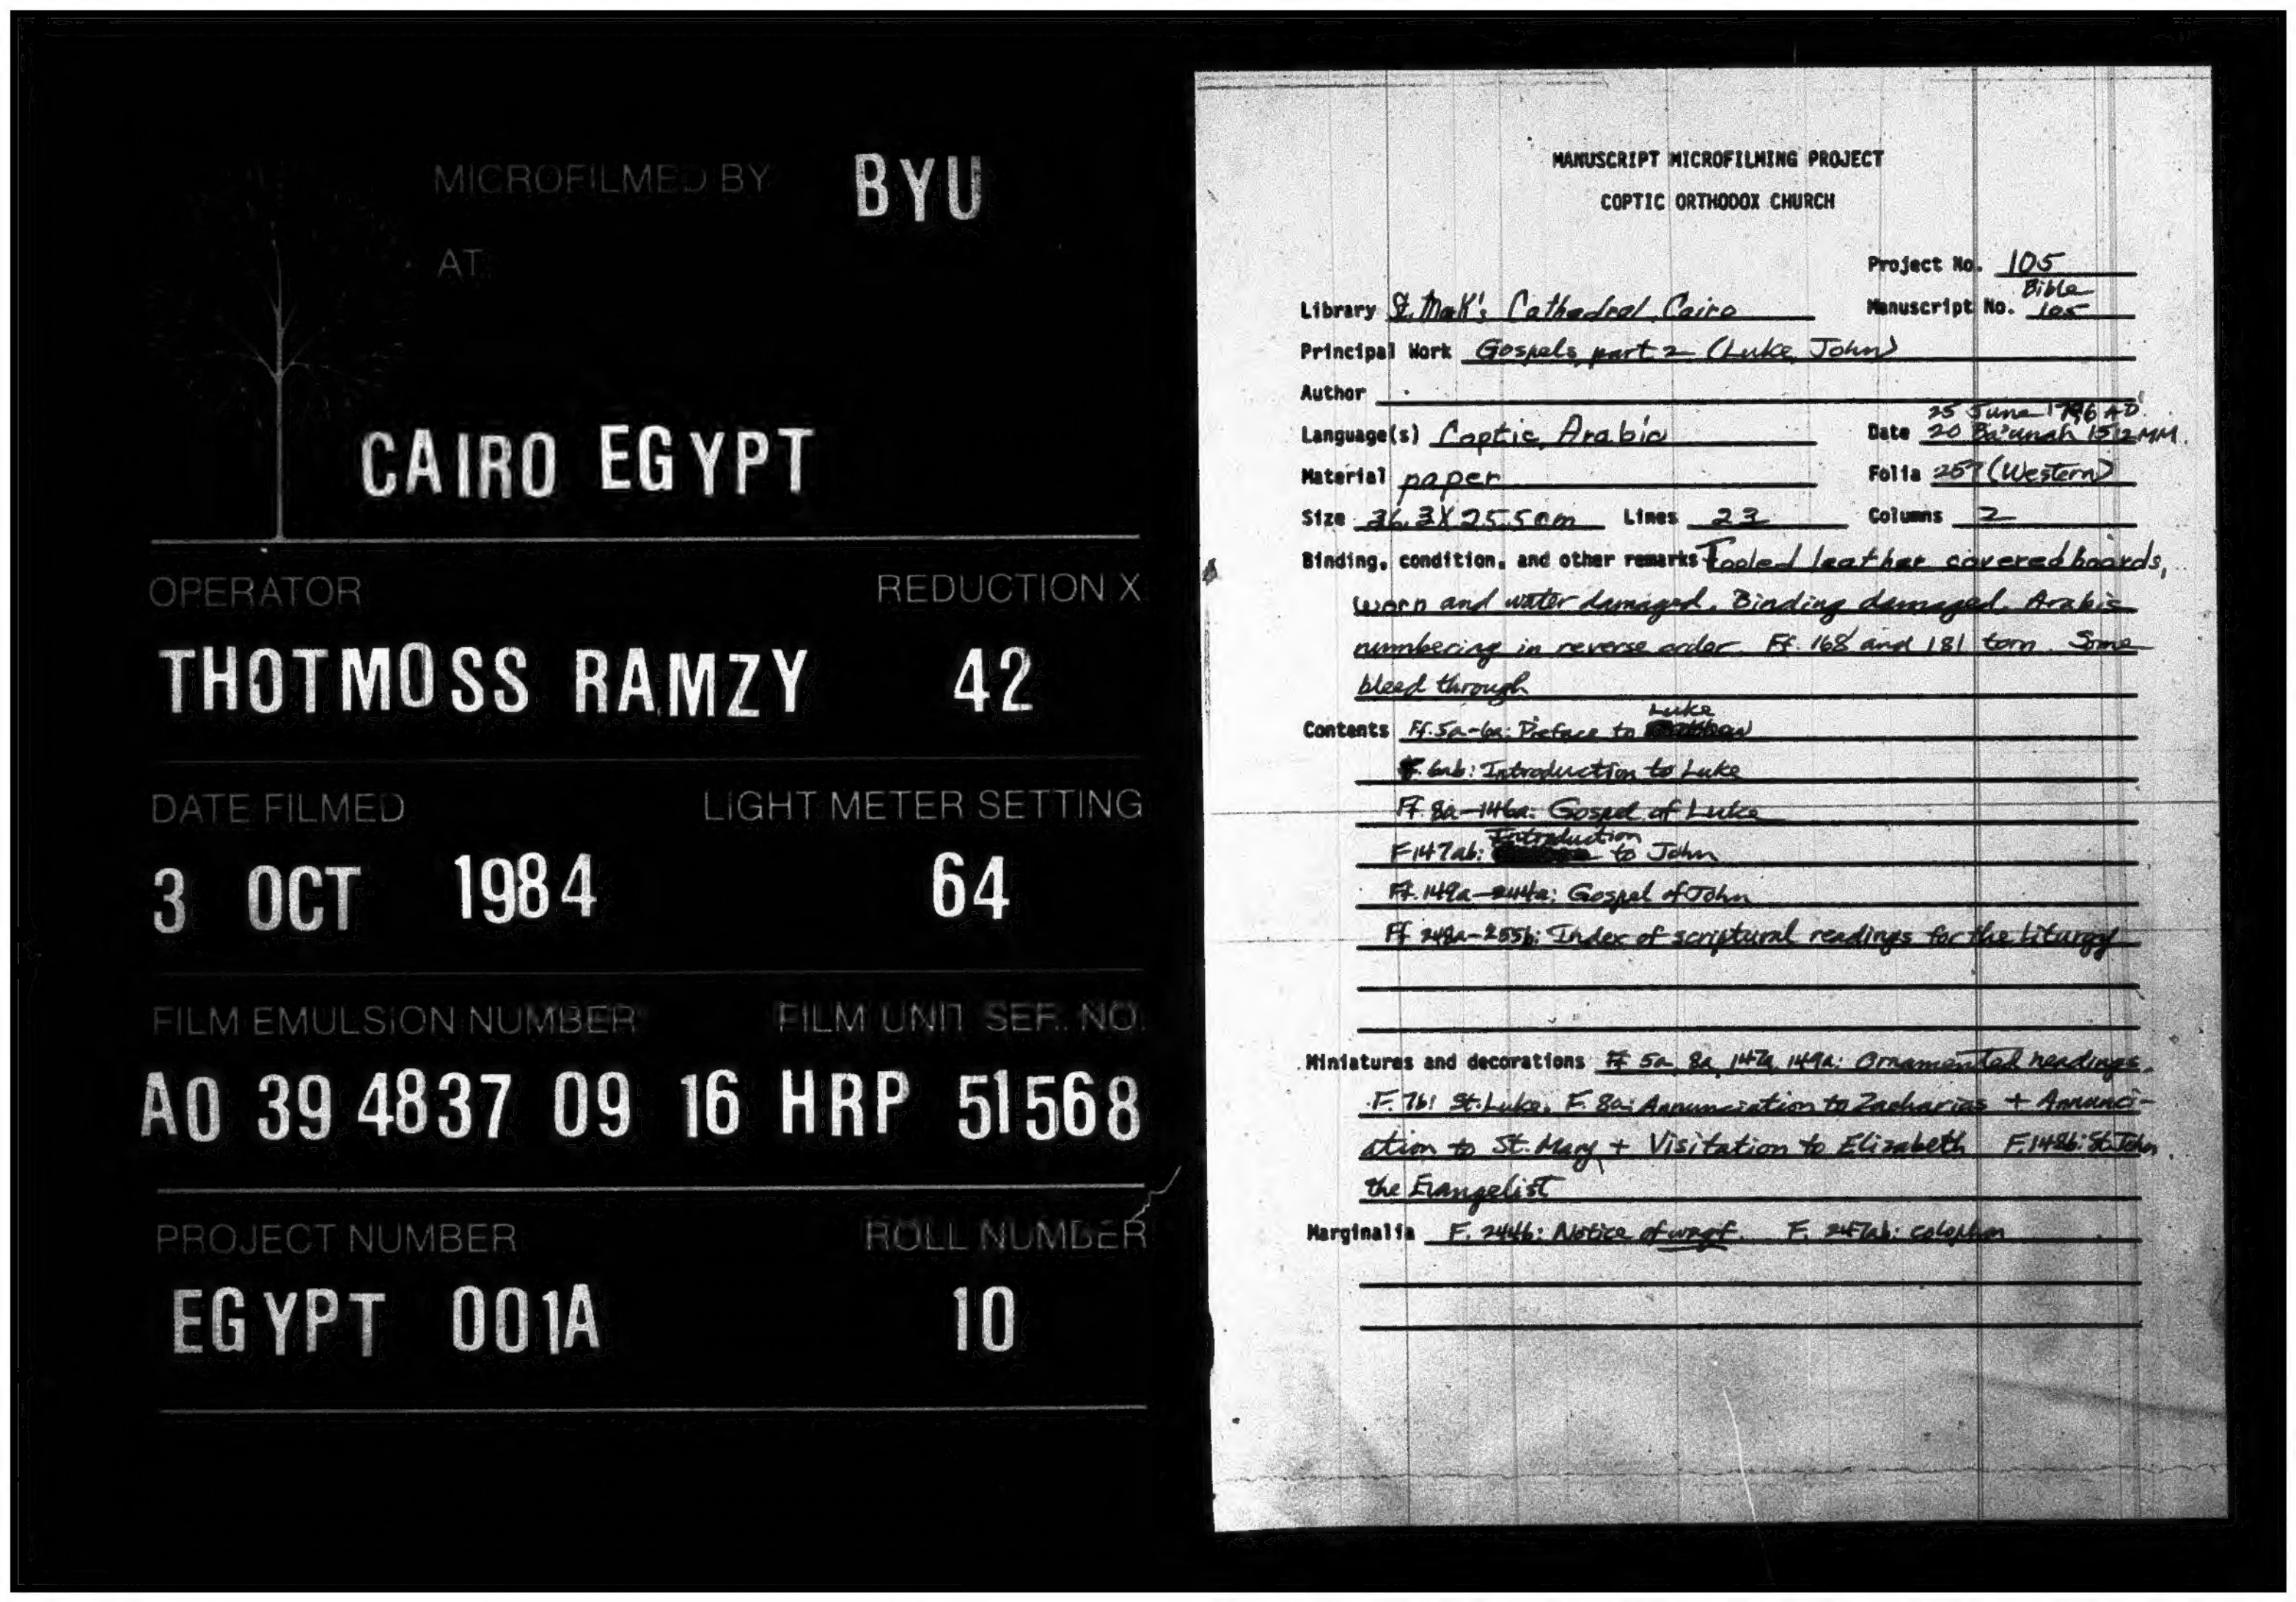 MICROFILMED BY BYU
AT
CAIRO EGYPT
OPERATOR REDUCTION X
THOTMOSS RAMZY 42
DATE FILMED LIGHT METER SETTING
3 OCT 1984 64
FILM EMULSION NUMBER FILM UNIT SER. NO.
A0 39 4837 09 16 HRP 51568
PROJECT NUMBER ROLL NUMBER
EGYPT 001A 10
MANUSCRIPT MICROFILMING PROJECT
COPTIC ORTHODOX CHURCH
Project No. 105
Bible
Library St. Mark's Cathedral, Cairo Manuscript No. 105
Principal Work Gospels, part 2 (Luke, John)
Author
25 June 1796 AD
Language(s) Coptic, Arabic Date 20 Ba'unah 1512 MM.
Material paper Folia 257 (Western)
Size 36.3 X 25.5 cm Lines 23 Columns 2
Binding, condition, and other remarks Tooled leather covered boards,
worn and water damaged. Binding damaged. Arabic
numbering in reverse order. Ff. 168 and 181 torn. Some
bleed through
Luke
Contents Ff. 5a-6a: Preface to
F. 6ab: Introduction to Luke
Ff. 8a-146a: Gospel of Luke
Introduction
F 147ab: to John
Ff. 149a-244a: Gospel of John
Ff 248a-255b: Index of scriptural readings for the Liturgy
Miniatures and decorations Ff 5a, 8a, 147a, 149a: Ornamented headings.
F. 7b: St. Luke. F. 8a: Annunciation to Zacharias + Annunci-
ation to St. Mary + Visitation to Elizabeth F. 148b: St. John
the Evangelist
Marginalia F. 244b: Notice of waqf. F. 247ab: colophon